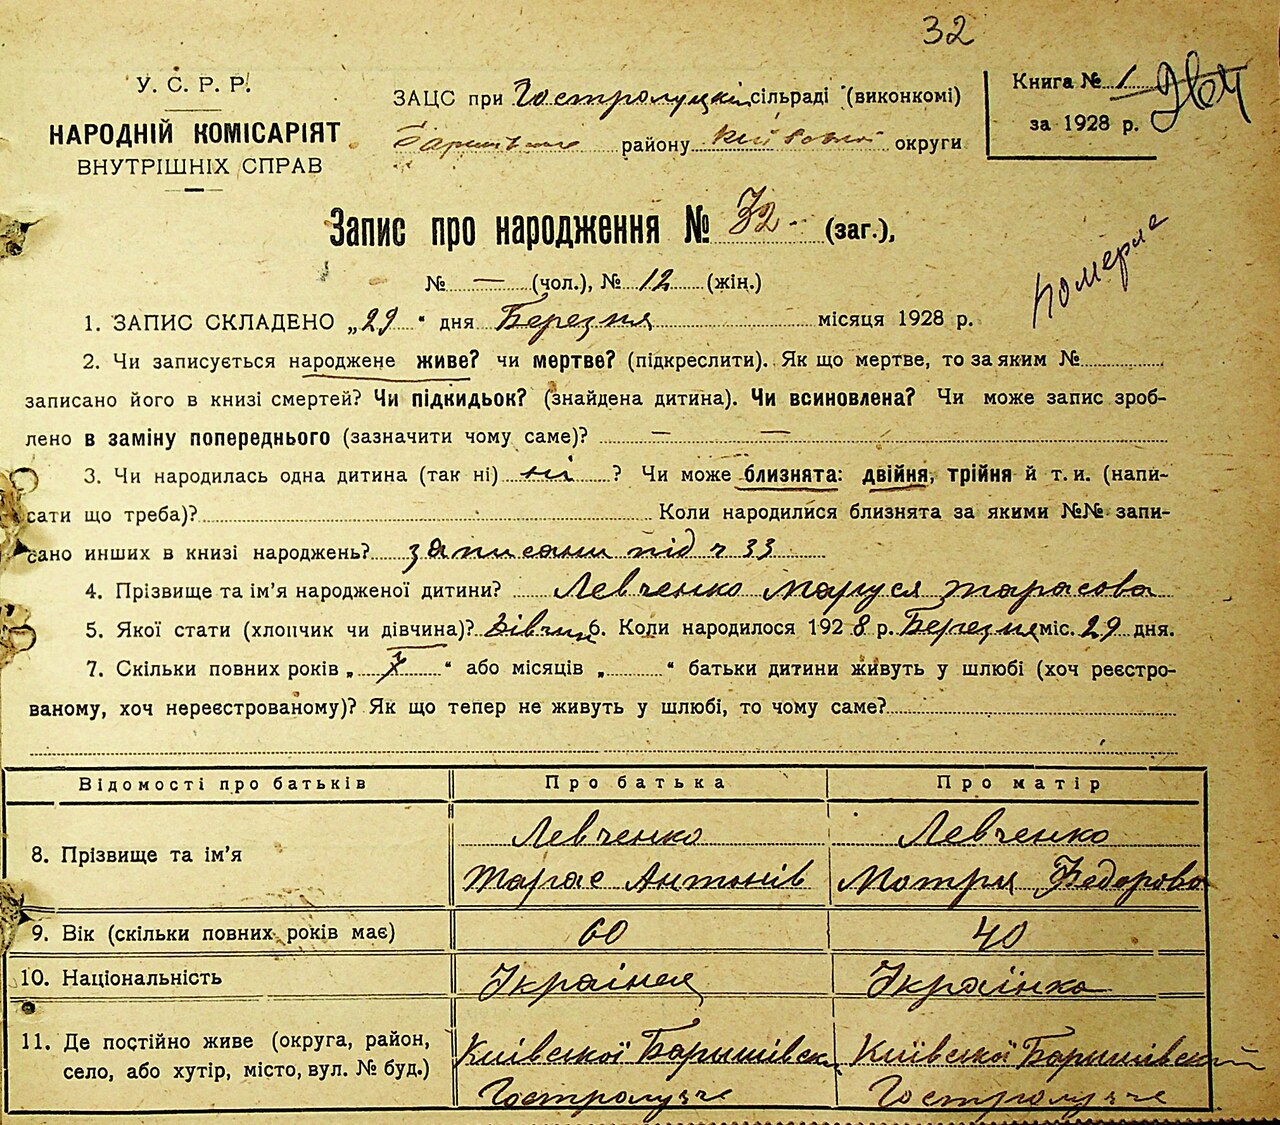 32
У. С. Р. Р.
НАРОДНІЙ КОМІСАРІЯТ
ВНУТРІШНІХ СПРАВ
ЗАЦС при Гостролуцкій сільраді (виконкомі)
району округи
Книга № 1
за 1928 р.
Запис про народження № 32 (заг.),
№ — (чол.), № 12 (жін.)
Померла
1. ЗАПИС СКЛАДЕНО „29“ дня Березня місяця 1928 р.
2. Чи записується народжене живе? чи мертве? (підкреслити). Як що мертве, то за яким №
записано його в книзі смертей? Чи підкидьок? (знайдена дитина). Чи всиновлена? Чи може запис зроб-
лено в заміну попереднього (зазначити чому саме)? — —
3. Чи народилась одна дитина (так ні) ні ? Чи може близнята: двійня, трійня й т. и. (напи-
сати що треба)? Коли народилися близнята за якими №№ запи-
сано инших в книзі народжень? записани під ч 33
4. Прізвище та ім’я народженої дитини? Левченко Маруся Тарасова
5. Якої стати (хлопчик чи дівчина)? Дівчин 6. Коли народилося 1928 р. Березня міс. 29 дня.
7. Скільки повних років „ “ або місяців „ “ батьки дитини живуть у шлюбі (хоч реєстро-
ваному, хоч нереєстрованому)? Як що тепер не живуть у шлюбі, то чому саме?
Відомості про батьків Про батька Про матір
8. Прізвище та ім’я
Левченко
Тарас Антонів
Левченко
Мотря Федорова
9. Вік (скільки повних років має) 60 40
10. Національність Українец Українка
11. Де постійно живе (округа, район,
село, або хутір, місто, вул. № буд.)
Київської Баришівськ
Гостролуче
Київської Баришівский
Гостролуче